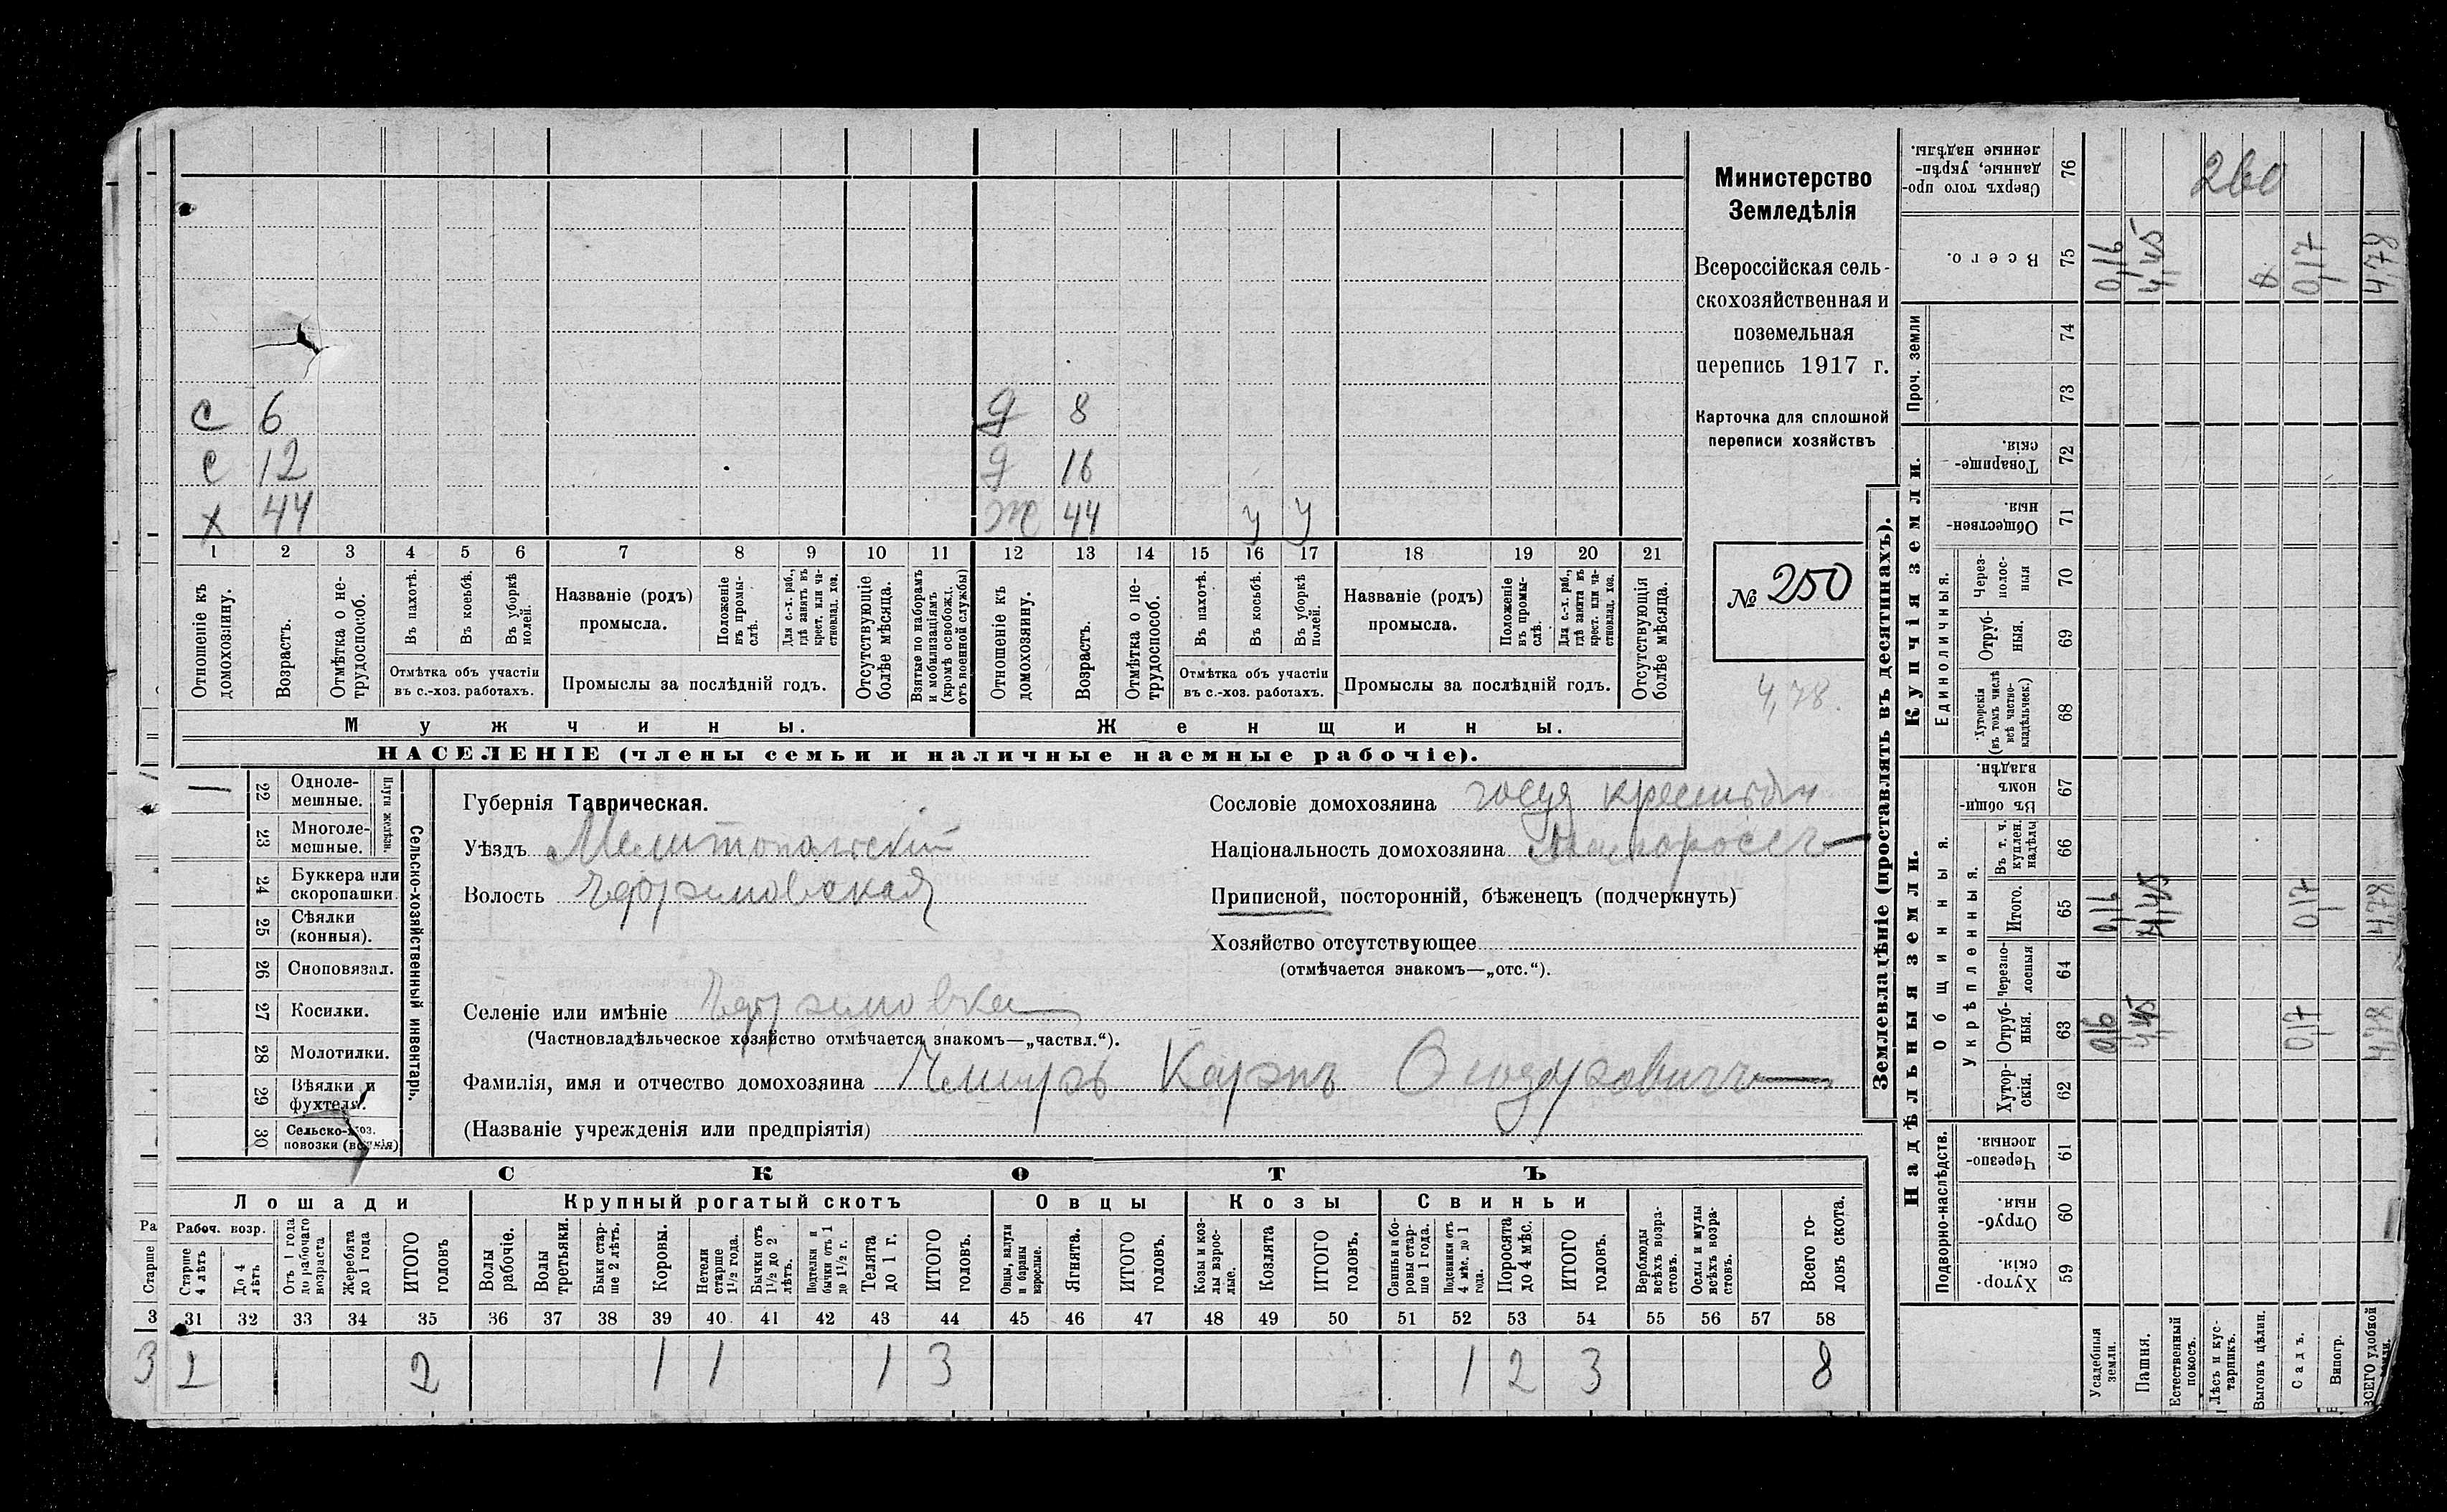 Министерство
Земледѣлія
Всероссійская сель-
скохозяйственная и
поземельная
перепись 1917 г.
Карточка для сплошной
переписи хозяйствъ
№ 250
4,78.
с 6 д 8
с 12 д 16
х 44 ж 44 у у
1 2 3 4 5 6 7 8 9 10 11 12 13 14 15 16 17 18 19 20 21
Отношеніе къ домохозяину.
Возрастъ.
Отмѣтка о не-трудоспособ.
Въ пахотѣ.
Въ косьбѣ.
Въ уборкѣ полей.
Отмѣтка объ участіи
въ с.-хоз. работахъ.
Названіе (родъ)
промысла.
Положеніе въ промы-слѣ.
Для с.-х. раб., гдѣ занятъ въ крест. или ча-стновлад. хоз.
Промыслы за послѣдній годъ.
Отсутствующіе болѣе мѣсяца.
Взятые по наборамъ и мобилизаціямъ (кромѣ освобожд. отъ военной службы)
Отношеніе къ домохозяину.
Возрастъ.
Отмѣтка о не-трудоспособ.
Въ пахотѣ.
Въ косьбѣ.
Въ уборкѣ полей.
Отмѣтка объ участіи
въ с.-хоз. работахъ.
Названіе (родъ)
промысла.
Положеніе въ промы-слѣ.
Для с.-х. раб., гдѣ занята въ крест. или ча-стновлад. хоз.
Промыслы за послѣдній годъ.
Отсутствующія болѣе мѣсяца.
Мужчины. Женщины.
НАСЕЛЕНІЕ (члены семьи и наличные наемные рабочіе).
22 Одноле-мешные.
23 Многоле-мешные.
Плуги желѣзн.
24 Буккера или скоропашки.
25 Сѣялки (конныя).
26 Сноповязал.
27 Косилки.
28 Молотилки.
29 Вѣялки и фухтеля.
30 Сельско-хоз. повозки
Сельско-хозяйственный инвентарь.
Губернія Таврическая.
Уѣздъ Мелитопольскій
Волость Ефремовская
Селеніе или имѣніе Ефремовка
(Частновладѣльческое хозяйство отмѣчается знакомъ—„частвл.“).
Фамилія, имя и отчество домохозяина Чмиръ Карпъ Феодоровичъ
(Названіе учрежденія или предпріятія)
Сословіе домохозяина
Національность домохозяина малороссъ
Приписной, посторонній, бѣженецъ (подчеркнуть)
Хозяйство отсутствующее
(отмѣчается знакомъ—„отс.“).
СКОТЪ
Лошади Крупный рогатый скотъ Овцы Козы Свиньи
Рабоч. возр.
Старше 4 лѣтъ
До 4 лѣтъ
Отъ 1 года до рабочаго возраста
Жеребята до 1 года
ИТОГО головъ
Волы рабочіе.
Волы третьяки.
Быки стар-ше 2 лѣтъ.
Коровы.
Нетели старше 1½ года.
Бычки отъ 1½ до 2 лѣтъ.
Подтелки и бычки отъ 1 до 1½ г.
Телята до 1 г.
ИТОГО головъ.
Овцы, валухи и бараны взрослые.
Ягнята.
ИТОГО головъ.
Козы и коз-лы взрос-лые.
Козлята
ИТОГО головъ.
Свиньи и бо-ровы стар-ше 1 года.
Подсвинки отъ 4 мѣс. до 1 года.
Поросята до 4 мѣс.
ИТОГО головъ.
Верблюды всѣхъ возра-стовъ.
Ослы и мулы всѣхъ возра-стовъ.
Всего го-ловъ скота.
31 32 33 34 35 36 37 38 39 40 41 42 43 44 45 46 47 48 49 50 51 52 53 54 55 56 57 58
2 2 1 1 1 3 1 2 3 8
Землевладѣніе (проставлять въ десятинахъ).
260
Сверхъ того про-данные, укрѣп-ленные надѣлы. 76
Всего. 75 0,16 4,45 0,17 4,78
Проч. земли 74 73
Купчія земли.
Товарище-скія. 72
Обществен-ныя. 71
Единоличныя.
Через-полос-ныя 70
Отруб-ныя. 69
Хуторскія (въ томъ числѣ всѣ частно-владѣльческ.) 68
Надѣльныя земли.
Общинныя.
Въ общи-номъ владѣн. 67
Укрѣпленныя.
Въ т. ч. куплен. надѣлы 66
Итого. 65 0,16 4,45 0,17 4,78
Черезпо-лосныя 64
Отруб-ныя. 63 0,16 4,45 0,17 4,78
Хутор-скія. 62
Подворно-наслѣдств.
Черезпо-лосныя. 61
Отруб-ныя. 60
Хутор-скія. 59
Усадебныя земли.
Пашня.
Естественный покосъ.
Лѣсъ и кус-тарникъ.
Выгонъ цѣлин.
Садъ.
Виногр.
ВСЕГО удобной земли.